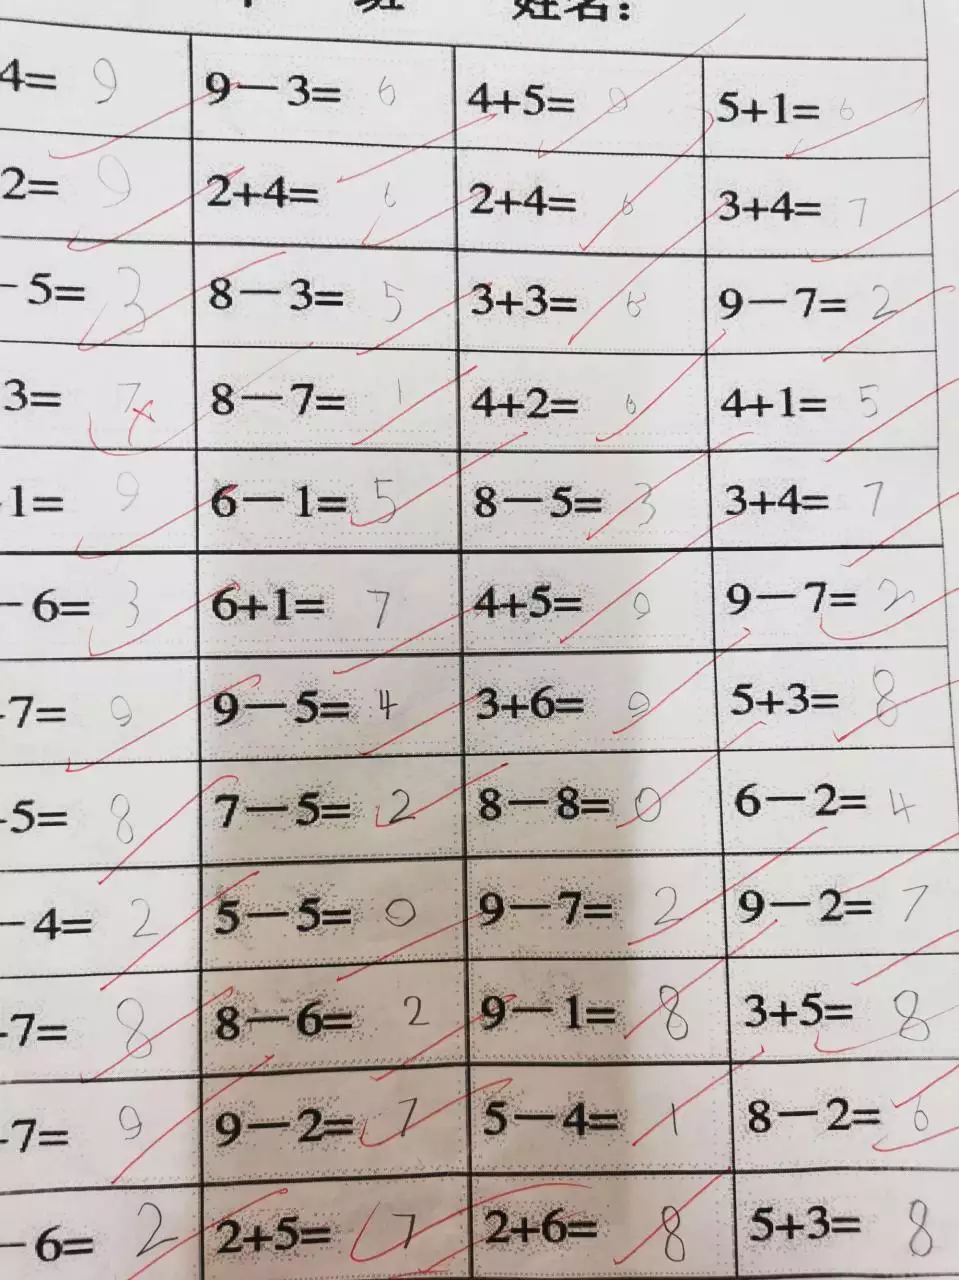 班 姓名:
4= 9 9－3= 6 4+5= 9 5+1= 6
2= 9 2+4= 6 2+4= 6 3+4= 7
－5= 3 8－3= 5 3+3= 6 9－7= 2
3= 7 8－7= 1 4+2= 6 4+1= 5
1= 9 6－1= 5 8－5= 3 3+4= 7
－6= 3 6+1= 7 4+5= 9 9－7= 2
7= 9 9－5= 4 3+6= 9 5+3= 8
5= 8 7－5= 2 8－8= 0 6－2= 4
－4= 2 5－5= 0 9－7= 2 9－2= 7
7= 8 8－6= 2 9－1= 8 3+5= 8
7= 9 9－2= 7 5－4= 1 8－2= 6
－6= 2 2+5= 7 2+6= 8 5+3= 8